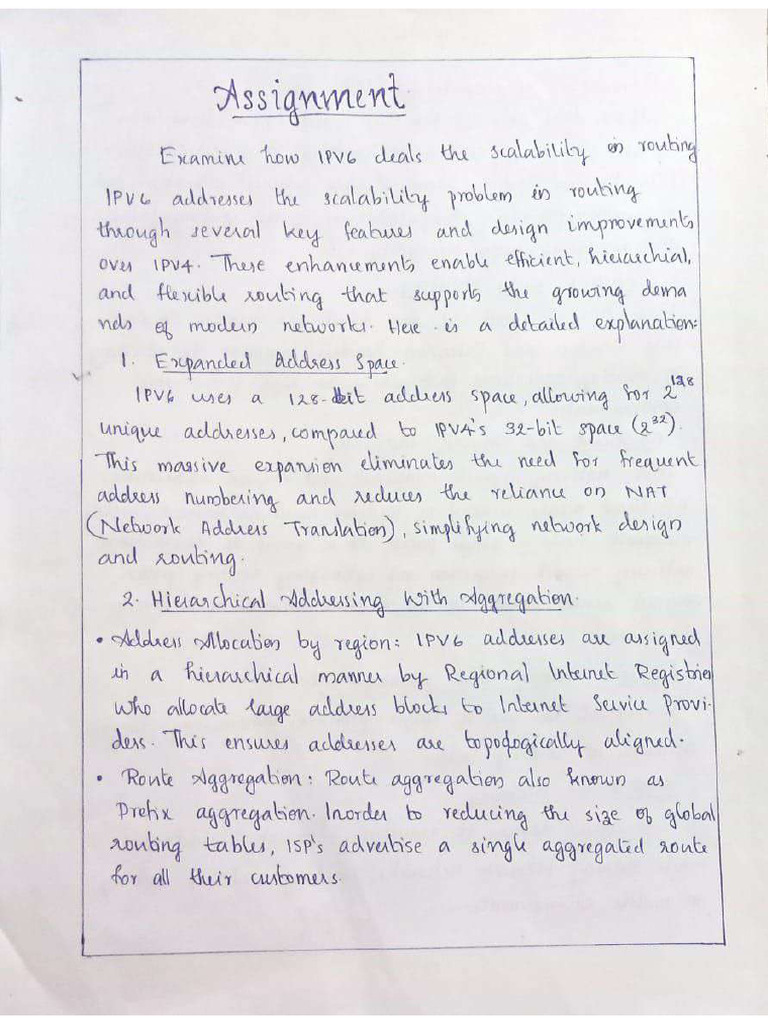 Assignment
Examine how IPV6 deals the scalability in routing
IPV6 addresses the scalability problem in routing
through several key features and design improvements
over IPV4. These enhancements enable efficient, hierarchial,
and flexible routing that supports the growing dema
nds of modern networks. Here is a detailed explanation:
1. Expanded Address Space.
IPV6 uses a 128-bit address space, allowing for 2^128
unique addresses, compared to IPV4's 32-bit space (2^32).
This massive expansion eliminates the need for frequent
address numbering and reduces the reliance on NAT
(Network Address Translation), simplifying network design
and routing.
2. Hierarchical Addressing With Aggregation.
• Address Allocation by region: IPV6 addresses are assigned
in a hierarchical manner by Regional Internet Registries
who allocate large address blocks to Internet Service Provi-
ders. This ensures addresses are topologically aligned.
• Route Aggregation: Route aggregation also known as
Prefix aggregation. Inorder to reducing the size of global
routing tables, ISP's advertise a single aggregated route
for all their customers.